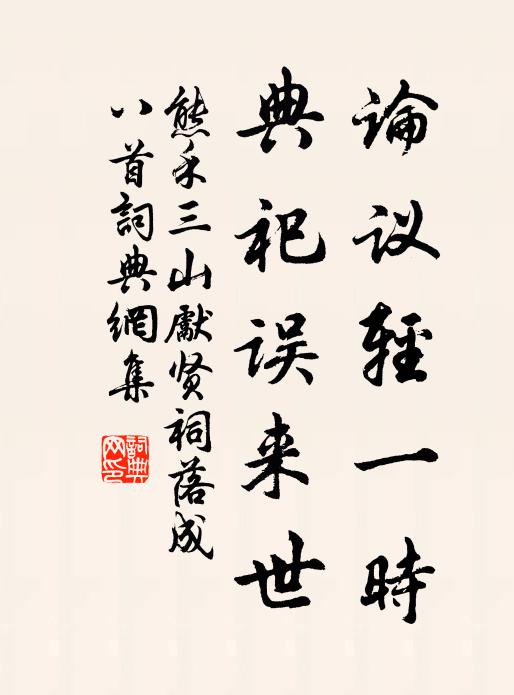 論议輕一時
典祀误来世
熊禾三山獻贤祠落成
八首詞典網集
詞典网印